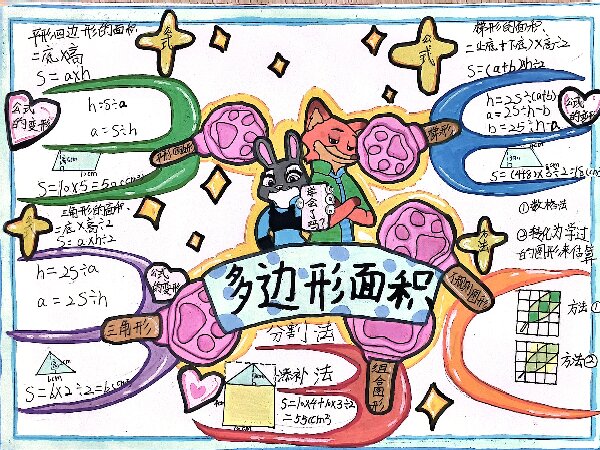 平行四边形的面积
=底×高
S=a×h
公式
公式的变形
h=S÷a
a=S÷h
平行四边形
10cm
S=10×5=50cm²
三角形的面积
=底×高÷2
S=a×h÷2
公式
h=2S÷a
a=2S÷h
公式的变形
三角形
6cm
学会了吗
多边形面积
分割法
添补法
S=10×4+10×3÷2
=55cm³
组合图形
梯形的面积
=(上底+下底)×高÷2
S=(a+b)×h÷2
公式
公式的变形
h=2S÷(a+b)
a=2S÷h-b
b=2S÷h-a
梯形
①数格法
②转化为学过
的图形来估算
方法
不规则图形
方法①
方法②